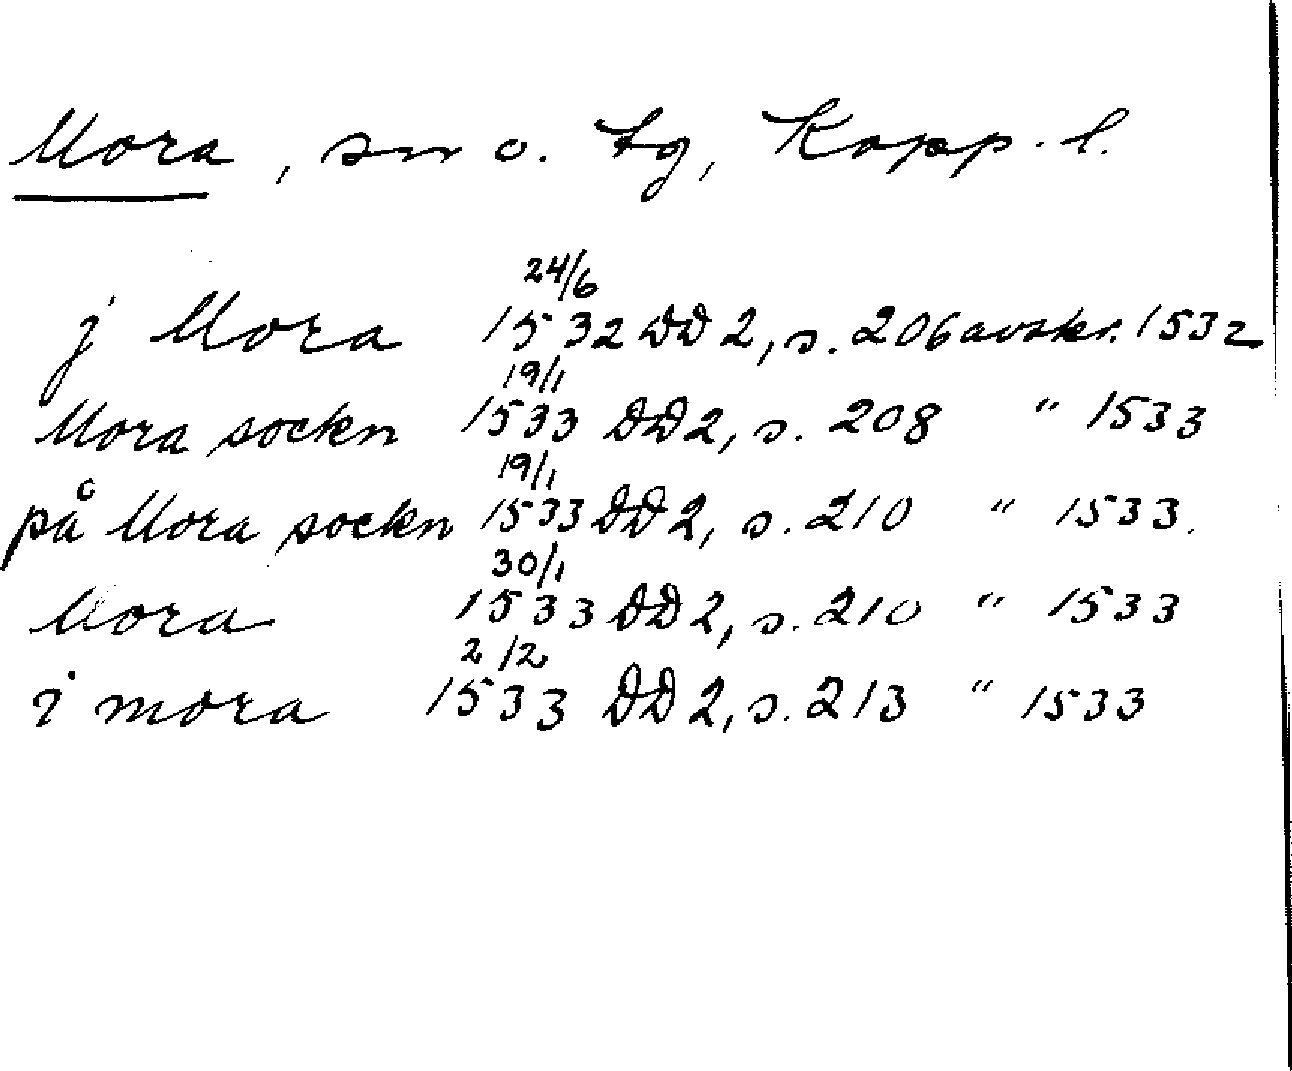 Mora, sn o. tg, Kopp. l.
24/6
j Mora 1532 DD 2, s. 206 avskr. 1532
19/1
Mora sockn 1533 DD 2, s. 208 " 1533
19/1
på Mora sockn 1533 DD 2, s. 210 " 1533.
30/1
Mora 1533 DD 2, s. 210 " 1533
2/2
i mora 1533 DD 2, s. 213 " 1533